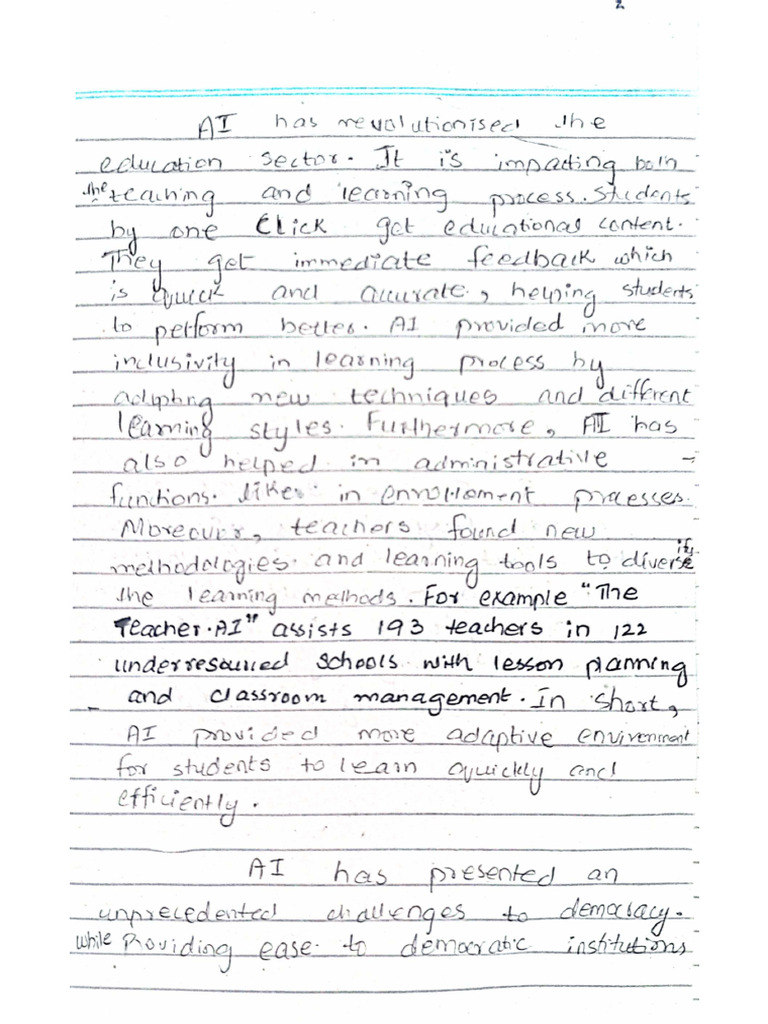 2
AI has revolutionised the
education sector. It is impacting both
the teaching and learning process. Students
by one Click get educational content.
They get immediate feedback which
is quick and accurate, helping students
to perform better. AI provided more
inclusivity in learning process by
adopting new techniques and different
learning styles. Furthermore, AI has
also helped in administrative
functions. like in enrollement processes.
Moreover, teachers found new
methodologies and learning tools to diversify
the learning methods. For example "The
Teacher.AI" assists 193 teachers in 122
underresourced schools with lesson planning
and classroom management. In short,
AI provided more adaptive environment
for students to learn quickly and
efficiently.
AI has presented an
unprecedented challenges to democracy.
while Providing ease to democratic institutions